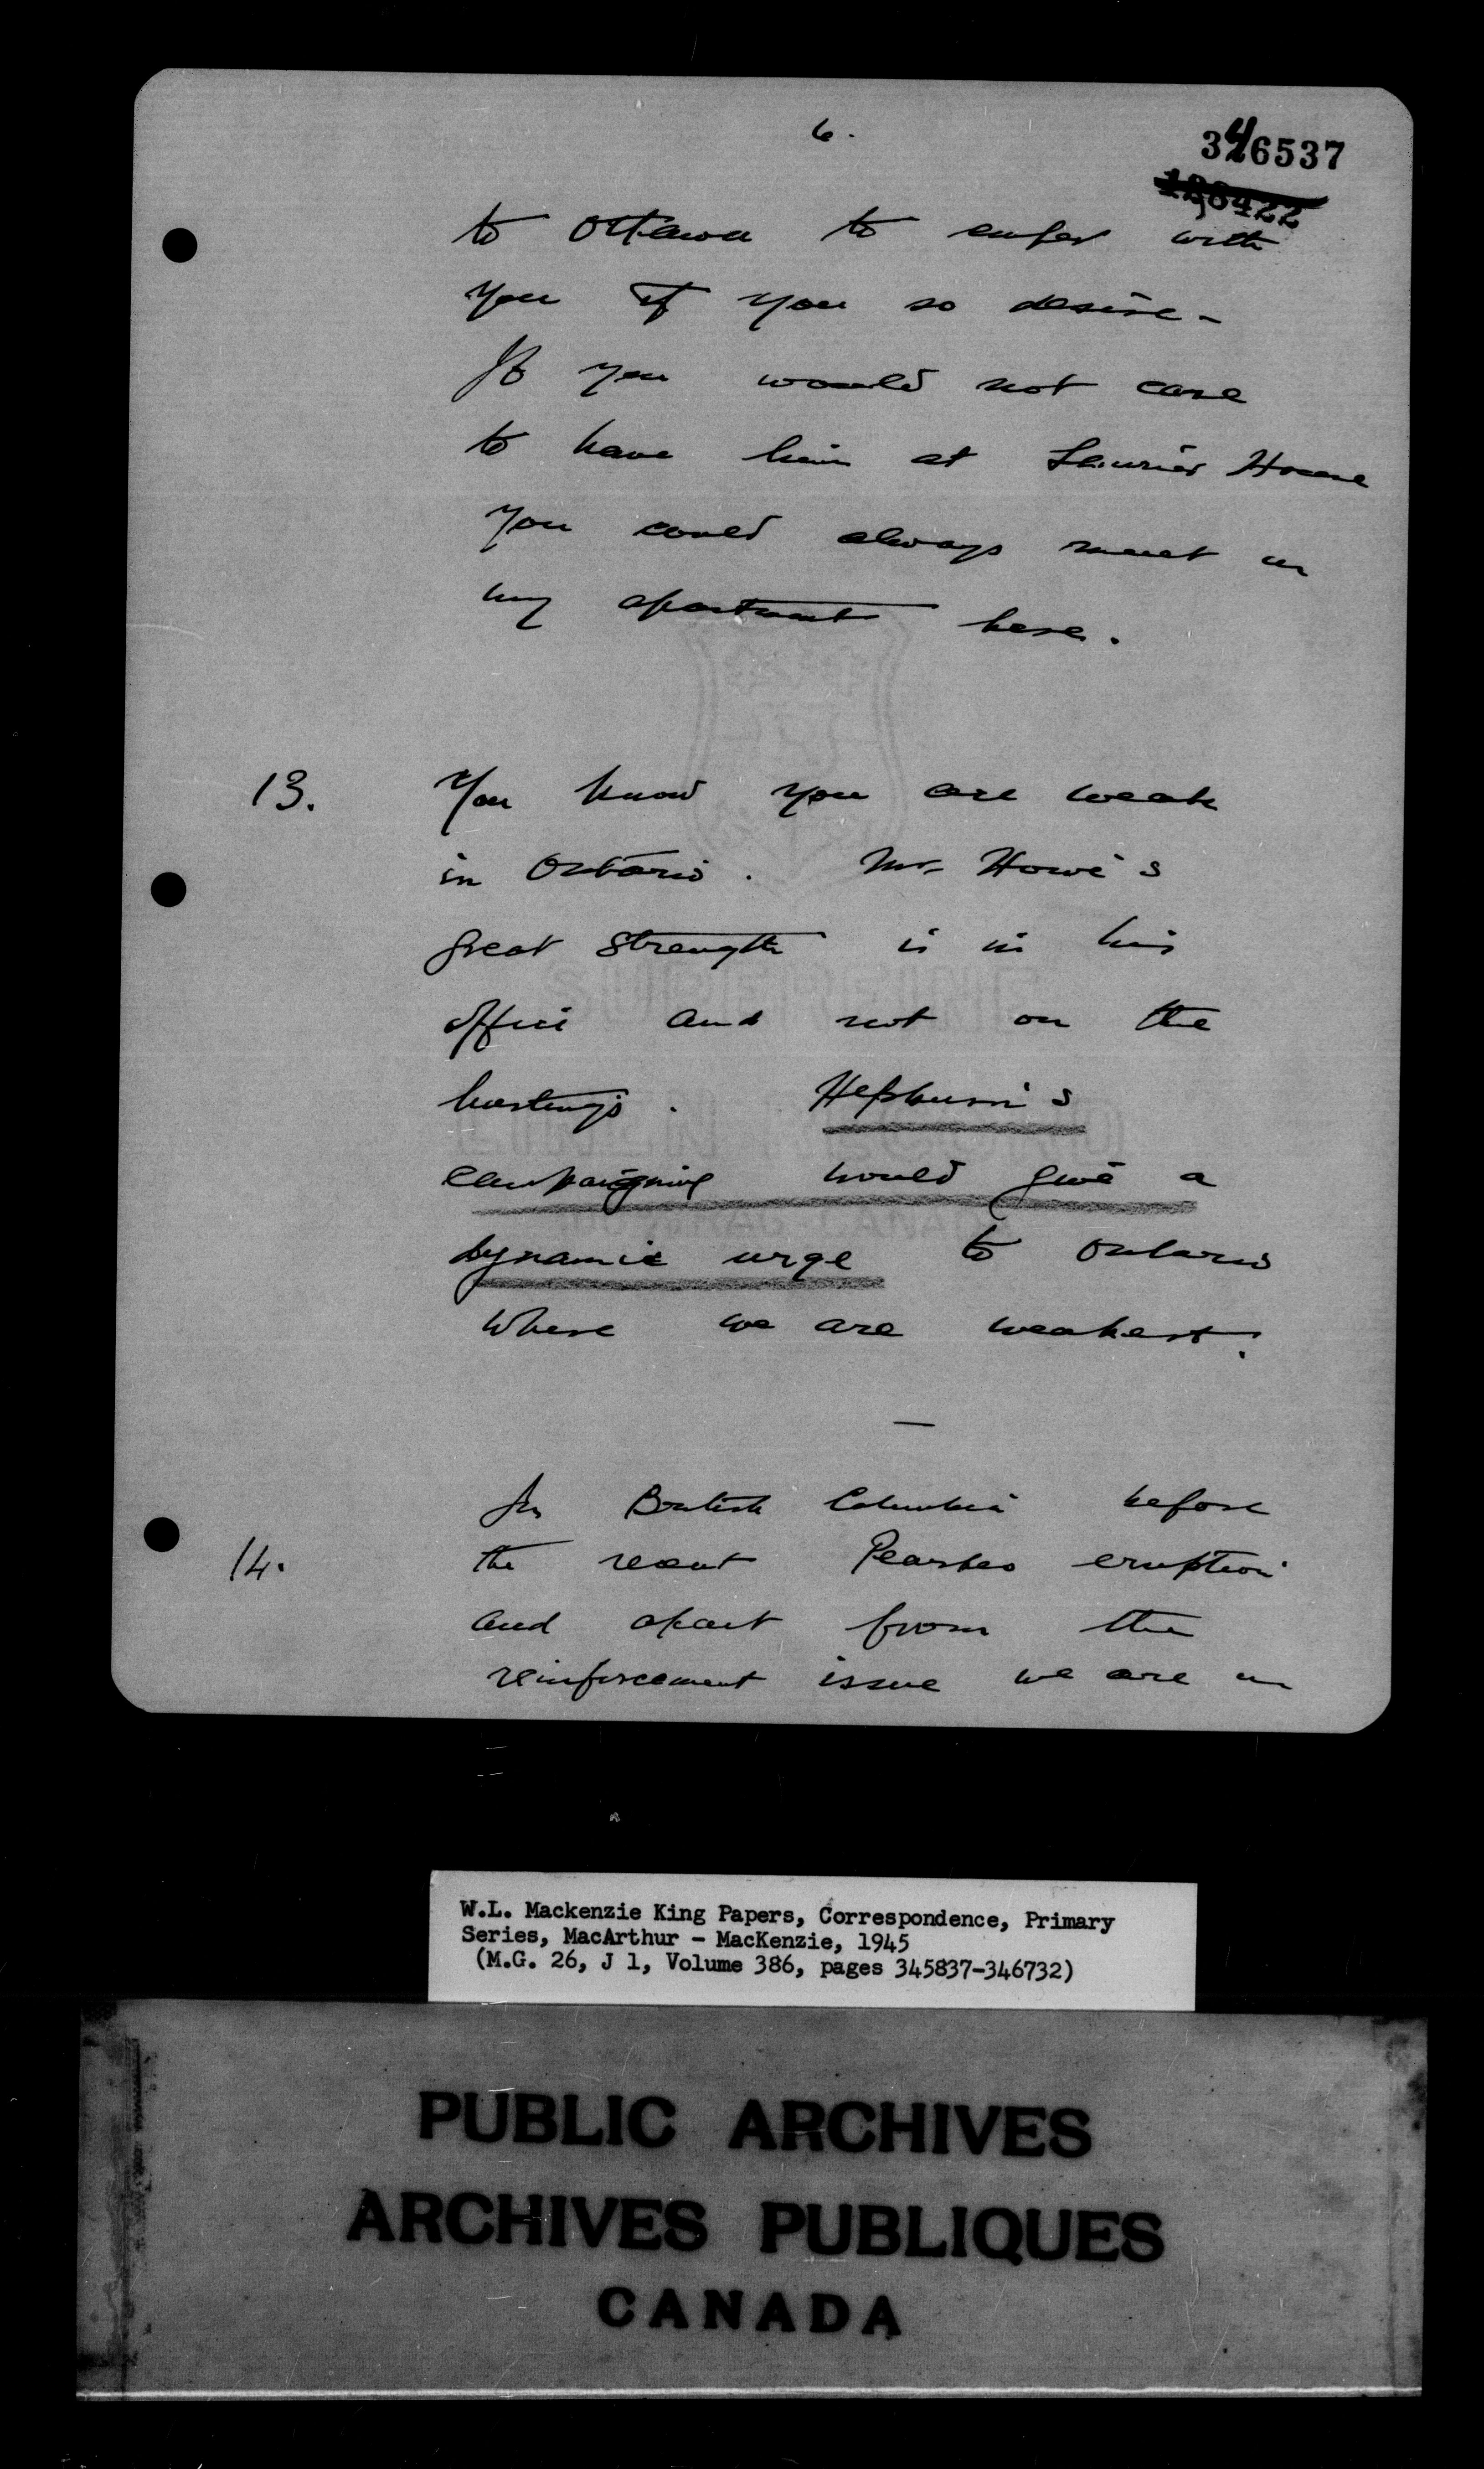 6.
346537
to Ottawa to confer with
you if you so desire -
If you would not care
to have him at Laurier House
you could always meet in
my apartment here.
13. You know you are weak
in Ontario. Mr. Howe's
great strength is in his
office and not on the
hustings. Hepburn's
campaigning would give a
dynamic urge to Ontario
where we are weakest.
—
In British Columbia before
14. the recent Pearkes eruption
and apart from the
reinforcement issue we are in
W.L. Mackenzie King Papers, Correspondence, Primary
Series, MacArthur - MacKenzie, 1945
(M.G. 26, J 1, Volume 386, pages 345837-346732)
PUBLIC ARCHIVES
ARCHIVES PUBLIQUES
CANADA